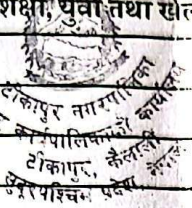 शिक्षा, युवा तथा खेल
टीकापुर नगरपालिका
नगर कार्यपालिकाको कार्यालय
टीकापुर, कैलाली
सुदूरपश्चिम प्रदेश, नेपाल